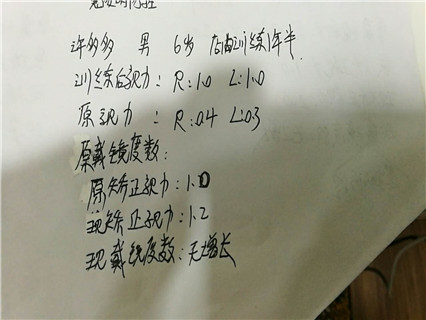 许多多 男 6岁 店面训练1年半
训练后视力: R:1.0 L:1.0
原视力: R:0.4 L:0.3
原戴镜度数:
原矫正视力:1.0
现矫正视力:1.2
现戴镜度数:无增长